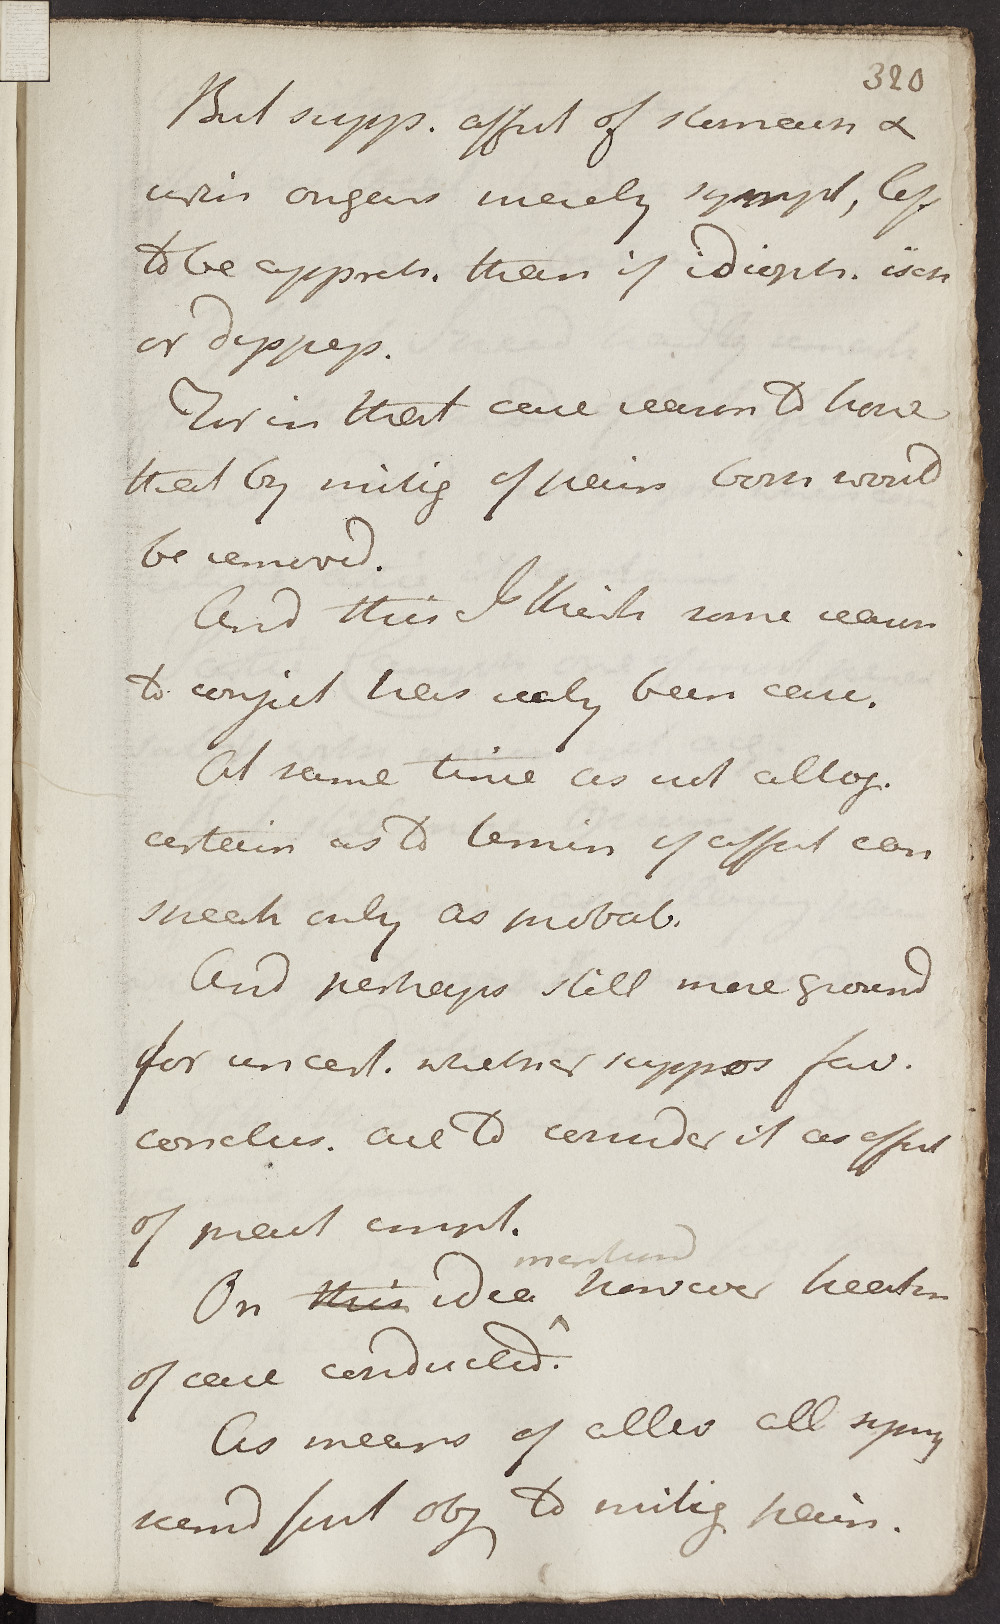 320
But supp. affect of stomach &
urin organs merely sympt, less
to be appreh. than if idiopth. isch
or dyspeps.
For in that case reason to hope
that by mitig of pain both would
be removd.
And this I think some reason
to conject has realy been case.
At same time as not altog.
certain as to termin of affect can
speak only as probab.
And perhaps still more ground
for uncert. whether suppos fav.
conclus. are to consider it as effect
of pract empl.
mentiond
On this idea however treatm
of case conducted.
As means of allev all symp
seemd first obj to mitig pain.